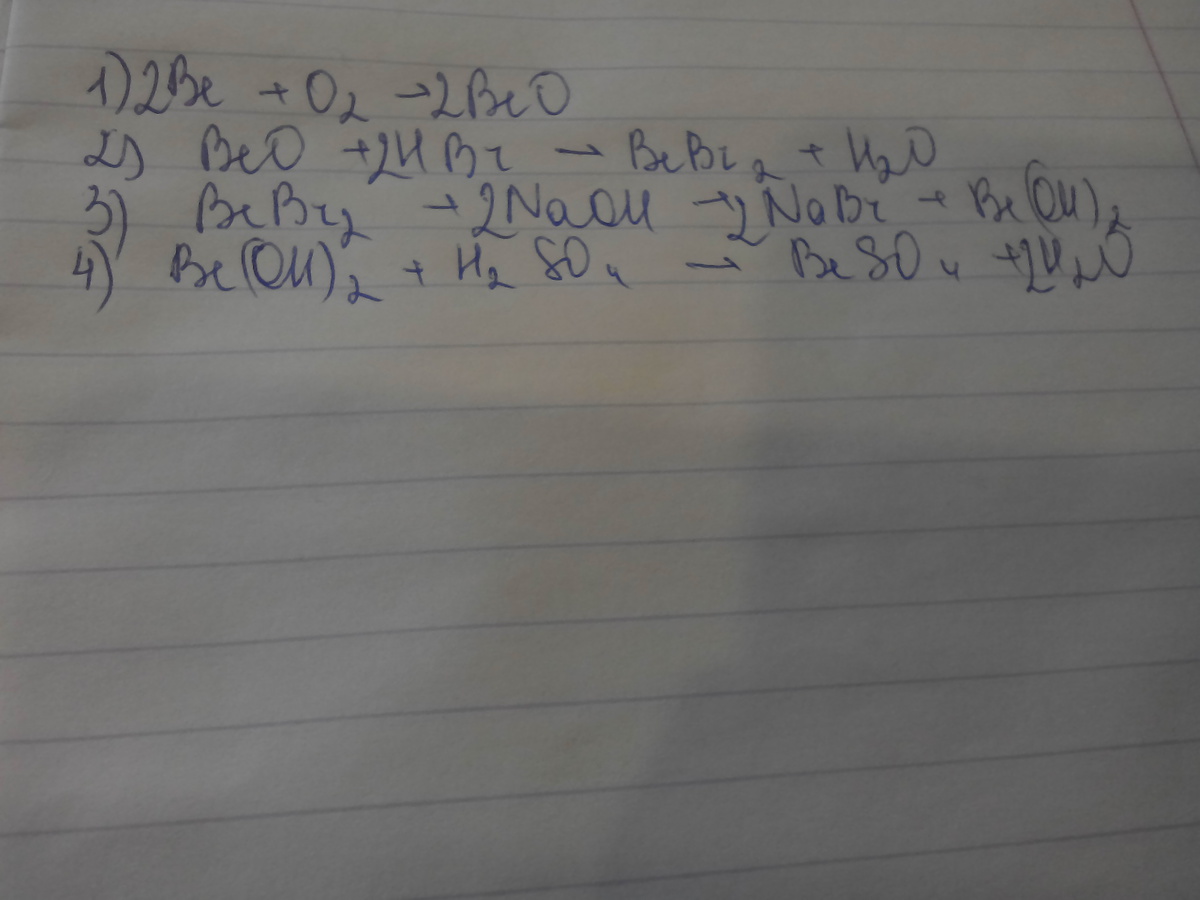 1) 2Be + O₂ → 2BeO
2) BeO + 2HBr → BeBr₂ + H₂O
3) BeBr₂ + 2NaOH → 2NaBr + Be(OH)₂
4) Be(OH)₂ + H₂SO₄ → BeSO₄ + 2H₂O